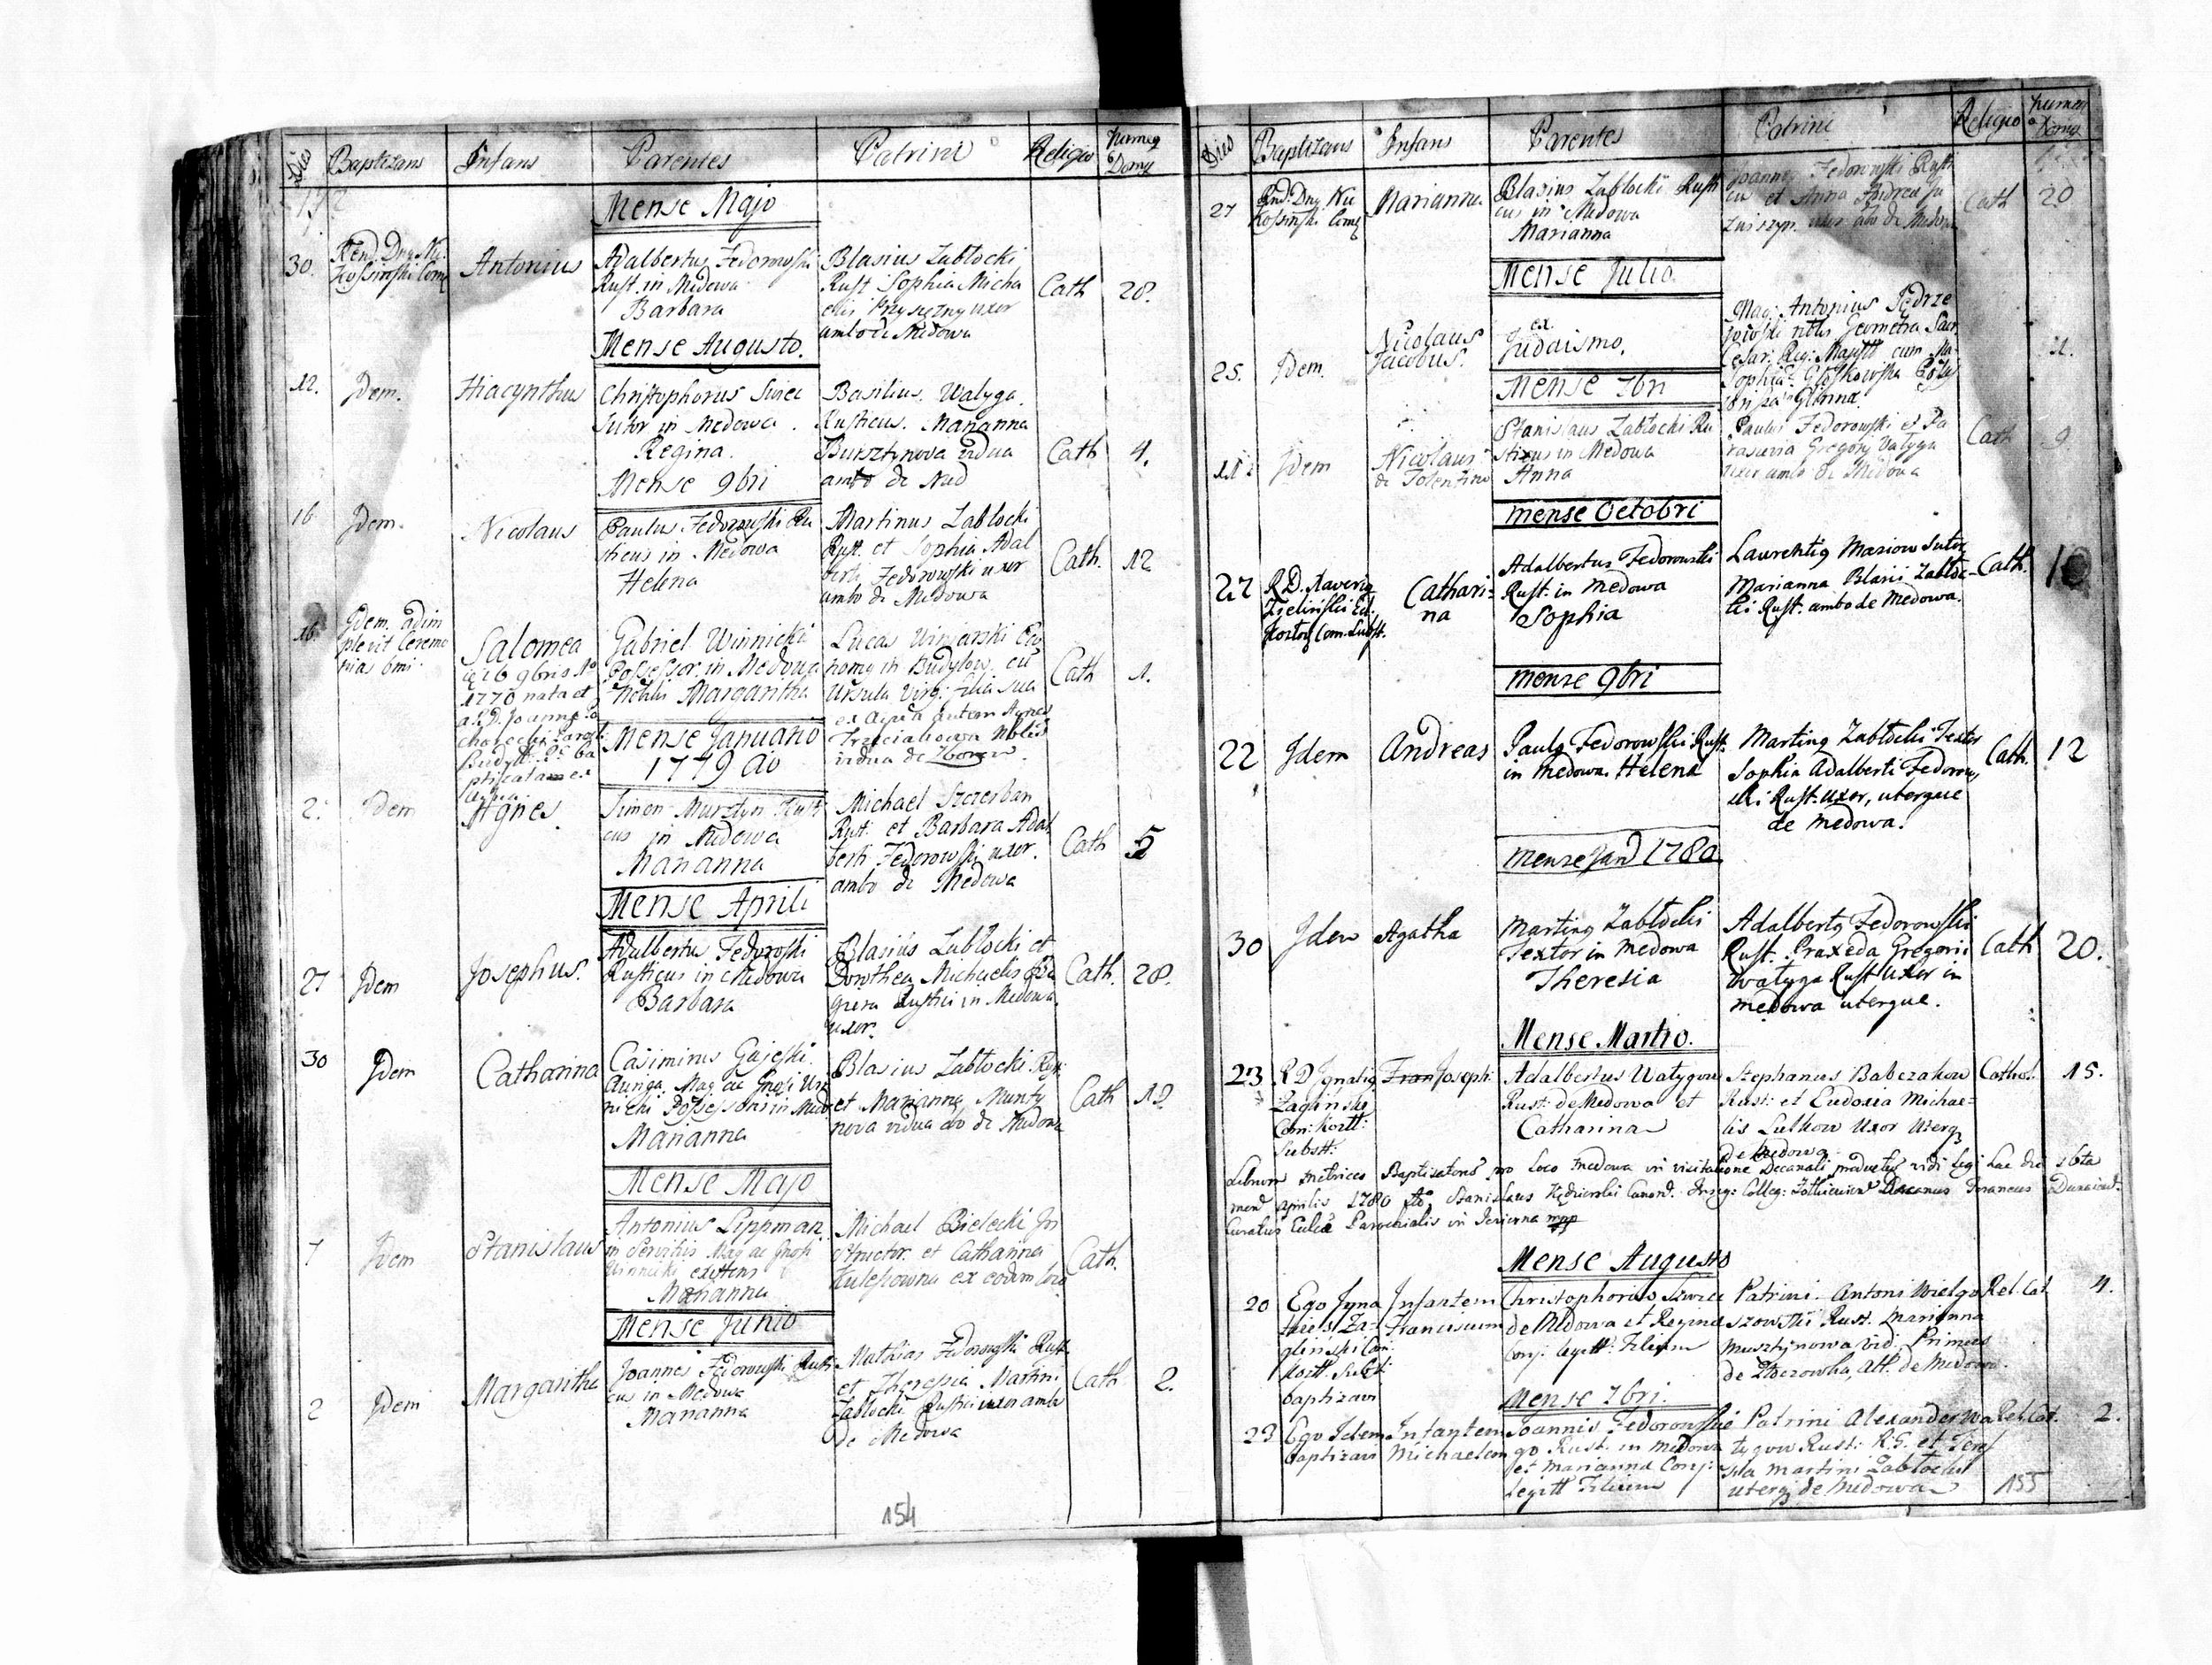 Dies Baptizans Infans Parentes Patrini Religio numeq Domq
Mense Majo
30. Rend. Dnq Ni. Kossinski Comq
Antonius
Adalbertus Fedorowski
Rust. in Medowa
Barbara
Blasius Zabłocki
Rust Sophia Micha
elis Przysiezny uxor
ambo de Medowa
Cath 28.
Mense Augusto.
12. Idem. Hiacynthus
Christophorus Swiec
Sutor in Medowa.
Regina.
Basilius Watyga.
Rusticus. Marianna
Bursztynova vidua
ambo de Med
Cath 4.
Mense 9bri
16 Idem. Nicolaus
Paulus Fedorowski Ru
sticus in Medowa
Helena
Martinus Zabłocki
Rust. et Sophia Adal
berti Fedorowski uxor
ambo de Medowa
Cath. 12
16 Idem. adim
plevit Ceremo
nias omi.
Salomea
1770 nata et
Gabriel Winnicki
Possessor in Medowa
Nobilis Margaritha
Lucas Winiarski Eco
nomq in Budylow. cu
Ursula Virg. filia sua
ex aqua autem Agnes
Trzecianowa Nobilis
vidua de Zborow.
Cath 1.
Mense Januario
1779 Ao
2. Idem Agnes.
Simon Mursztyn Rusti
cus in Medowa
Marianna
Michael Szczerban
Rust. et Barbara Adal
berti Fedorowski uxor.
ambo de Medowa
Cath 5
Mense Aprili
27 Idem Josephus.
Adalbertus Fedoroski
Rusticus in Medowa
Barbara
Blasius Zabłocki et
Dorothea Michaelis
Rustici in Medowa
uxor.
Cath. 28.
30 Idem Catharina
Casimirus Gajeski.
Auriga Mag ac Gnosi Wi
nicki Possessoris in Medo
Marianna
Blasius Zabłocki
et Marianna Munty
nova vidua abo de Medowa
Cath 19
Mense Majo
7 Idem Stanislaus
Antonius Lippman
in Servitiis Mag ac Gnosi
Winnicki existens
Marianna
Michael Bielecki In
structor. et Catharina
Kulesowna ex eodem loco
Cath.
Mense Junio
2 Idem Margaritha
Joannes Fedorowski Rusti
cus in Medowa
Marianna
Mathias Fedorowski Rust
et Theresia Martini
Zabłocki Rustici uxor ambo
de Medowa
Cath 2.
154
Dies Baptizans Infans Parentes Patrini Religio numeq Domq
27 Rnd. Dnq Nic
Kossinski Comq
Marianna
Blasius Zabłocki Rusti
cus in Medowa
Marianna
Joannes Fedorowski Rusti
cus et Anna Andrea
uxor abo de Medowa
Cath 20
Mense Julio.
25. Idem.
Nicolaus
Jacobus.
ex
Judaismo.
Mag. Antonius Jędrze
jowski nblis Geometra Sacr.
Cesar. Reg. Majestt cum Ma.
11.
Mense 7bri
11 Idem
Nicolaus
de Tolentino
Stanislaus Zabłocki Ru
sticus in Medowa
Anna
Paulus Fedorowski et Pa
rascevia Gregorij Watyga
uxor ambo de Medowa
Cath 9
Mense Octobri
27 R.D. Xaveriq
Zielinski
Cathari-
na
Adalbertus Fedorowski
Rust. in Medowa
Sophia
Laurentiq Mariow Sutor
Marianna Blasii Zabło-
cki Rust. ambo de Medowa.
Cath. 10
Mense 9bri
22 Idem Andreas
Paulq Fedorowski Rust.
in Medowa. Helena
Martinq Zabłocki Textor
Sophia Adalberti Fedorow
ski Rust. uxor, uterque
de Medowa.
Cath. 12
Mense Jan 1780
30 Idem Agatha
Martinq Zabłocki
Textor in Medowa
Theresia
Adalbertq Fedorowski
Rust. Praxeda Gregorii
Watyga Rust uxor in
Medowa uterque.
Cath 20.
Mense Martio.
23 R D Ignatiq
Zaglinski
Com: Kortt:
Substt:
Fran Joseph.
Adalbertus Watygow
Rust: de Medowa et
Catharina
Stephanus Babczakow
Rust: et Eudoxia Michae-
lis Lulkow Uxor Uterq
de Medowa
Cathol. 15.
Librum Metrices Baptisatorum pro Loco Medowa in visitatione Decanali productum vidi legi hac die 16ta
mens Aprilis 1780 Ao Stanislaus Kędzierski Canon. Insig: Colleg: Zołkievien Decanus
Curatus Ecclae Parochialis in Jezierna mpp
Mense Augusto
20 Ego Igna
tius Za-
glinski Com.
Kortt. Substt:
baptizavi
Infantem
Franciscum
Christophorus Swiec
de Medowa et Regina
Conj: legitt: Filium
Patrini. Antoni Wielgo
szowski Rust. Marianna
Musztynowa vid. Primas
de Złoczowka, Alt. de Medowa.
Rel. Cat. 4.
Mense 7bri.
23 Ego Idem
baptizavi
Infantem
Michaelem
Joannis Fedorowski
go Rust. in Medowa
et Marianna Conj:
legitt Filium
Patrini Alexander Wa
tygow Rust: R:G. et Teres
sia Martini Zabłocki
uterq de Medowa
Rel. Cat. 2.
155